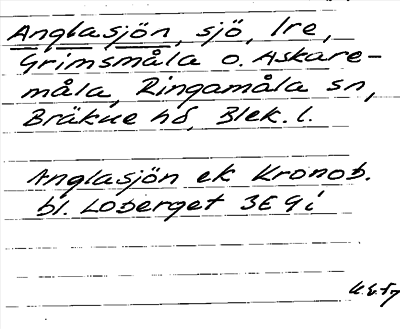 Anglasjön, sjö, Ire,
Grimsmåla o. Askare-
måla, Ringamåla sn,
Bräkne hd, Blek. l.
Anglasjön ek Kronob.
bl. Loberget 3E 9i